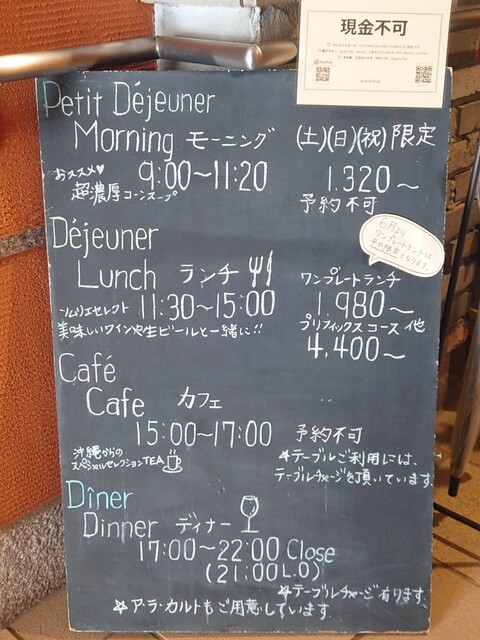 現金不可
Petit Déjeuner
Morning モーニング (土)(日)(祝)限定
おススメ♥ 9:00〜11:20 1.320〜
超濃厚コーンスープ 予約不可
Déjeuner
6月より
ワンプレートランチは
平日限定となります。
Lunch ランチ ワンプレートランチ
ソムリエセレクト 11:30〜15:00 1.980〜
美味しいワインや生ビールと一緒に!! プリフィックスコース 他
4.400〜
Café
Cafe カフェ
15:00〜17:00 予約不可
沖縄からの
スペシャルセレクションTEA
☆テーブルご利用には、
テーブルチャージを頂いています。
Dîner
Dinner ディナー
17:00〜22:00 Close
(21:00 L.O)
☆テーブルチャージ有ります。
☆ア・ラ・カルトもご用意しています。